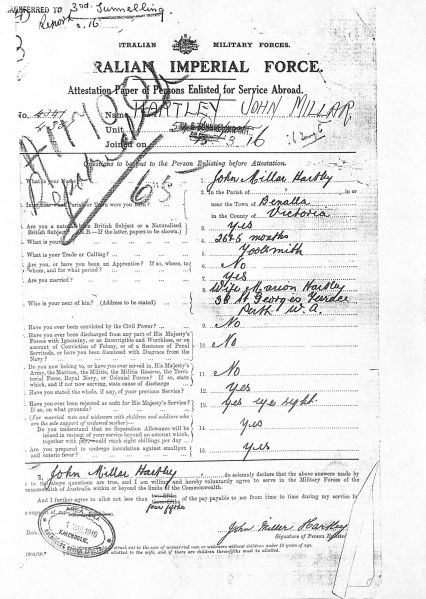 TRANSFERRED TO 3rd. Tunnelling
Report 2.16
AUSTRALIAN MILITARY FORCES.
AUSTRALIAN IMPERIAL FORCE.
Attestation Paper of Persons Enlisted for Service Abroad.
No. Name HARTLEY JOHN MILLAR
Unit
Joined on 3.16
Questions to be put to the Person Enlisting before Attestation.
What is your Name? 1. John Millar Hartley
In or near what Parish or Town were you born? 2. In the Parish of in or
near the Town of Benalla
in the County of Victoria
Are you a natural born British Subject or a Naturalised
British Subject? (N.B.—If the latter, papers to be shown.) 3. Yes
What is your 4. 26 & 5 months
What is your Trade or Calling? 5. Toolsmith
Are you, or have you been an Apprentice? If so, where, to
whom, and for what period? 6. No
Are you married? 7. Yes
Who is your next of kin? (Address to be stated) 8. Wife Marion Hartley
38 St Georges Terrace
Perth W.A.
Have you ever been convicted by the Civil Power? 9. No
Have you ever been discharged from any part of His Majesty's
Forces with Ignominy, or as Incorrigible and Worthless, or on
account of Conviction of Felony, or of a Sentence of Penal
Servitude, or have you been dismissed with Disgrace from the
Navy? 10. No
Do you now belong to, or have you ever served in, His Majesty's
Army, the Marines, the Militia, the Militia Reserve, the Territorial
Force, Royal Navy, or Colonial Forces? If so, state
which, and if not now serving, state cause of discharge 11. No
Have you stated the whole, if any, of your previous Service? 12. Yes
Have you ever been rejected as unfit for His Majesty's Service?
If so, on what grounds? 13. Yes eye sight
(For married men and widowers with children and soldiers who
are the sole support of widowed mother)—
Do you understand that no Separation Allowance will be
issued in respect of your service beyond an amount which,
together with pay, would reach eight shillings per day 14. Yes
Are you prepared to undergo inoculation against smallpox
and enteric fever? 15. Yes
I, John Millar Hartley do solemnly declare that the above answers made by
me to the above questions are true, and I am willing and hereby voluntarily agree to serve in the Military Forces of the
Commonwealth of Australia within or beyond the limits of the Commonwealth.
And I further agree to allot not less than of the pay payable to me from time to time during my service for
four fifths
support of
1916
KALGOORLIE
Date John Millar Hartley
Signature of Person Enlisted